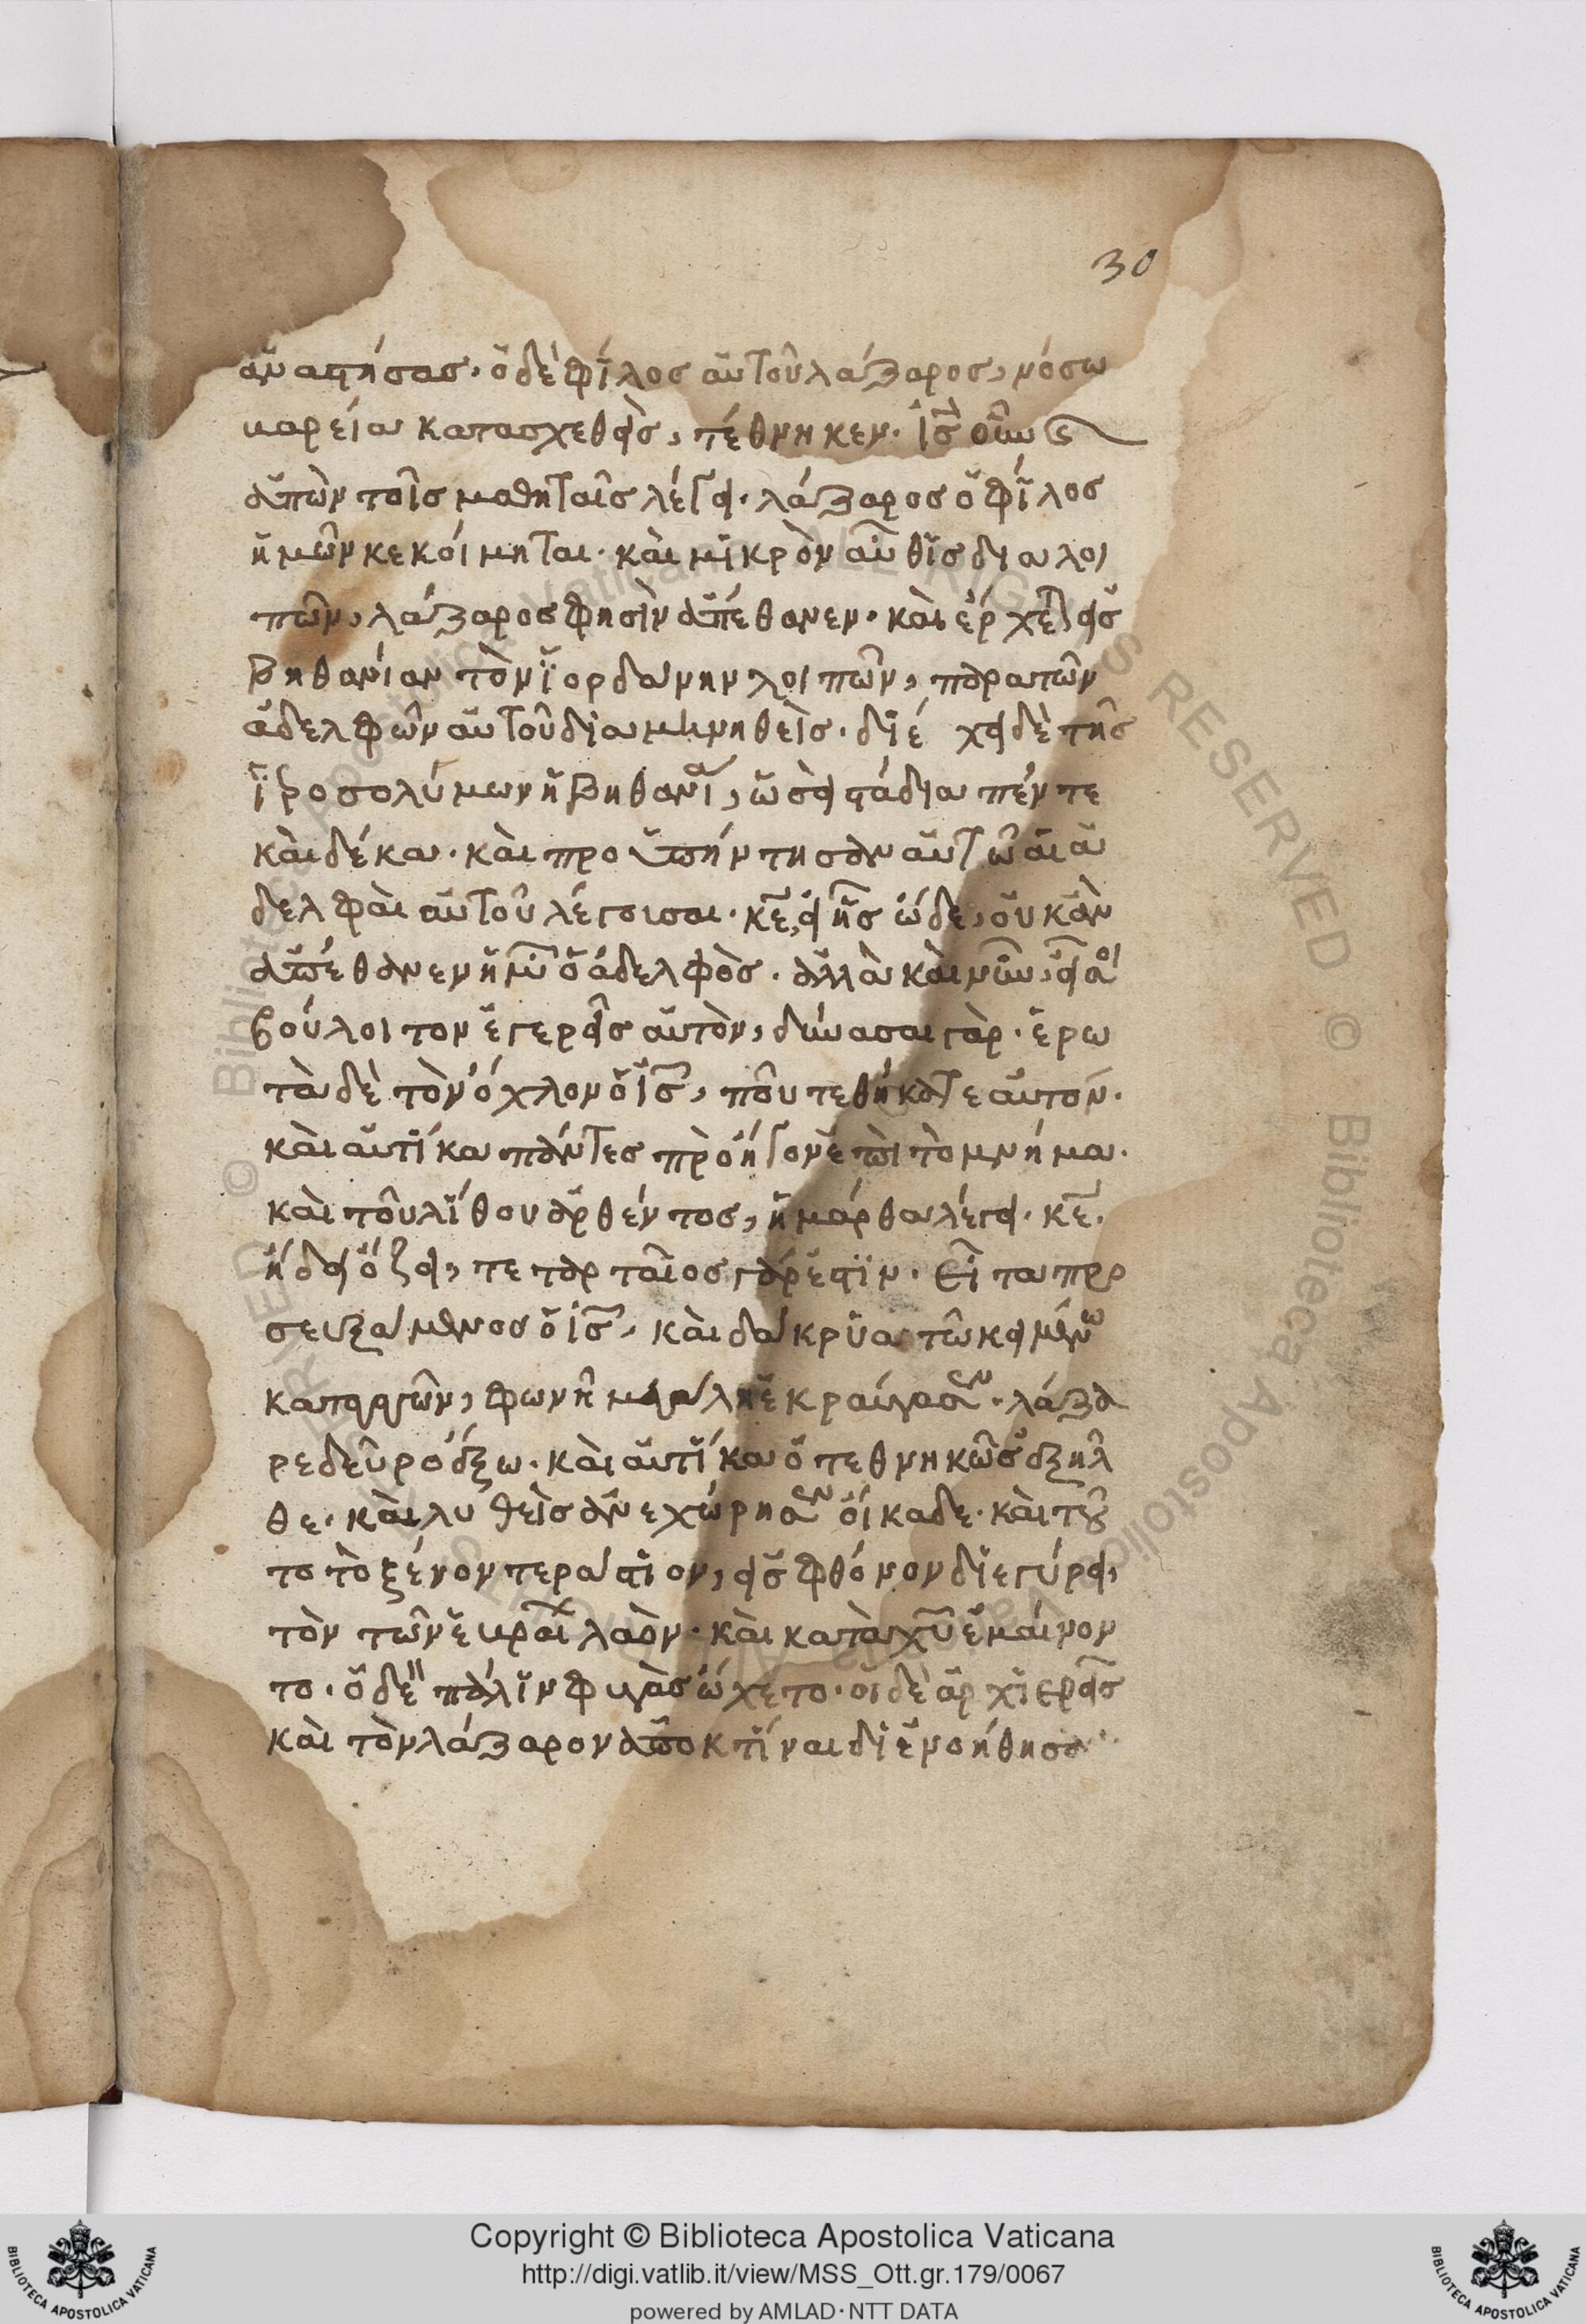 30
ἀναστήσας· ὁ δὲ φίλος αὐτοῦ λάζαρος, νόσω
μακρεία κατασχεθεὶς, τέθνηκεν. ἰς οὖν
εἰπὼν τοῖς μαθηταῖς λέγει· λάζαρος ὁ φίλος
ἡμῶν κεκοίμηται· καὶ μικρὸν αὖθις διαλοι
πὼν, λάζαρος φησὶν ἀπέθανεν· καὶ ἔρχεται εἰς
βηθανίαν τὸν ἰορδάνην λοιπὼν, παρα τῶν
ἀδελφῶν αὐτοῦ διαμμνηθεὶς· διέχει δὲ τῆς
ἱροσολύμων ἡ βηθανία, ὡσεὶ στάδια πέντε
καὶ δέκα· καὶ προϋπήντησαν αὐτῶ αἱ ἀ
δελφαὶ αὐτοῦ λέγουσαι· κε, εἰ ἦς ὧδε, οὐκ ἂν
ἀπέθανεν ἡμῖν ὁ ἀδελφὸς· ἀλλὰ καὶ νῦν, εἰ
βούλοιτον ἐγερεῖς αὐτὸν, δύνασαι γὰρ· ἐρω
τὰ δὲ τὸν ὄχλον ὁ ἰς, ποῦ τεθήκατε αὐτόν·
καὶ αὐτίκα πάντες προῆγον ἐπὶ τὸ μνῆμα·
καὶ τοῦ λίθου ἀρθέντος, ἡ μάρθα λέγει· κε·
ἤδη ὄζει, τεταρταῖος γάρ ἐστιν· εἶτα προ
σευξάμενος ὁ ἰς, καὶ δάκρυα τῶ κειμένω
καταστάζων, φωνῆ μεγάλη ἐκραύγασεν· λάζα
ρε δεῦρο ἔξω· καὶ αὐτίκα ὁ τεθνηκῶς ἐξῆλ
θε· καὶ λυθεὶς ἀνεχώρησεν οἴκαδε· καὶ τοῦ
το τὸ ξένον τεράστιον, εἰς φθόνον διεγείρει,
τὸν τῶν ἑβραίων λαὸν· καὶ κατὰ χυ ἐμαίνον
το· ὁ δὲ πάλιν φυγὰς ὤχετο· οἱ δὲ ἀρχιερεῖς
καὶ τὸν λάζαρον ἀποκτίναι διενοήθησαν
© Biblioteca Apostolica Vaticana ALL RIGHTS RESERVED
Copyright © Biblioteca Apostolica Vaticana
http://digi.vatlib.it/view/MSS_Ott.gr.179/0067
powered by AMLAD · NTT DATA
BIBLIOTECA APOSTOLICA VATICANA
BIBLIOTECA APOSTOLICA VATICANA